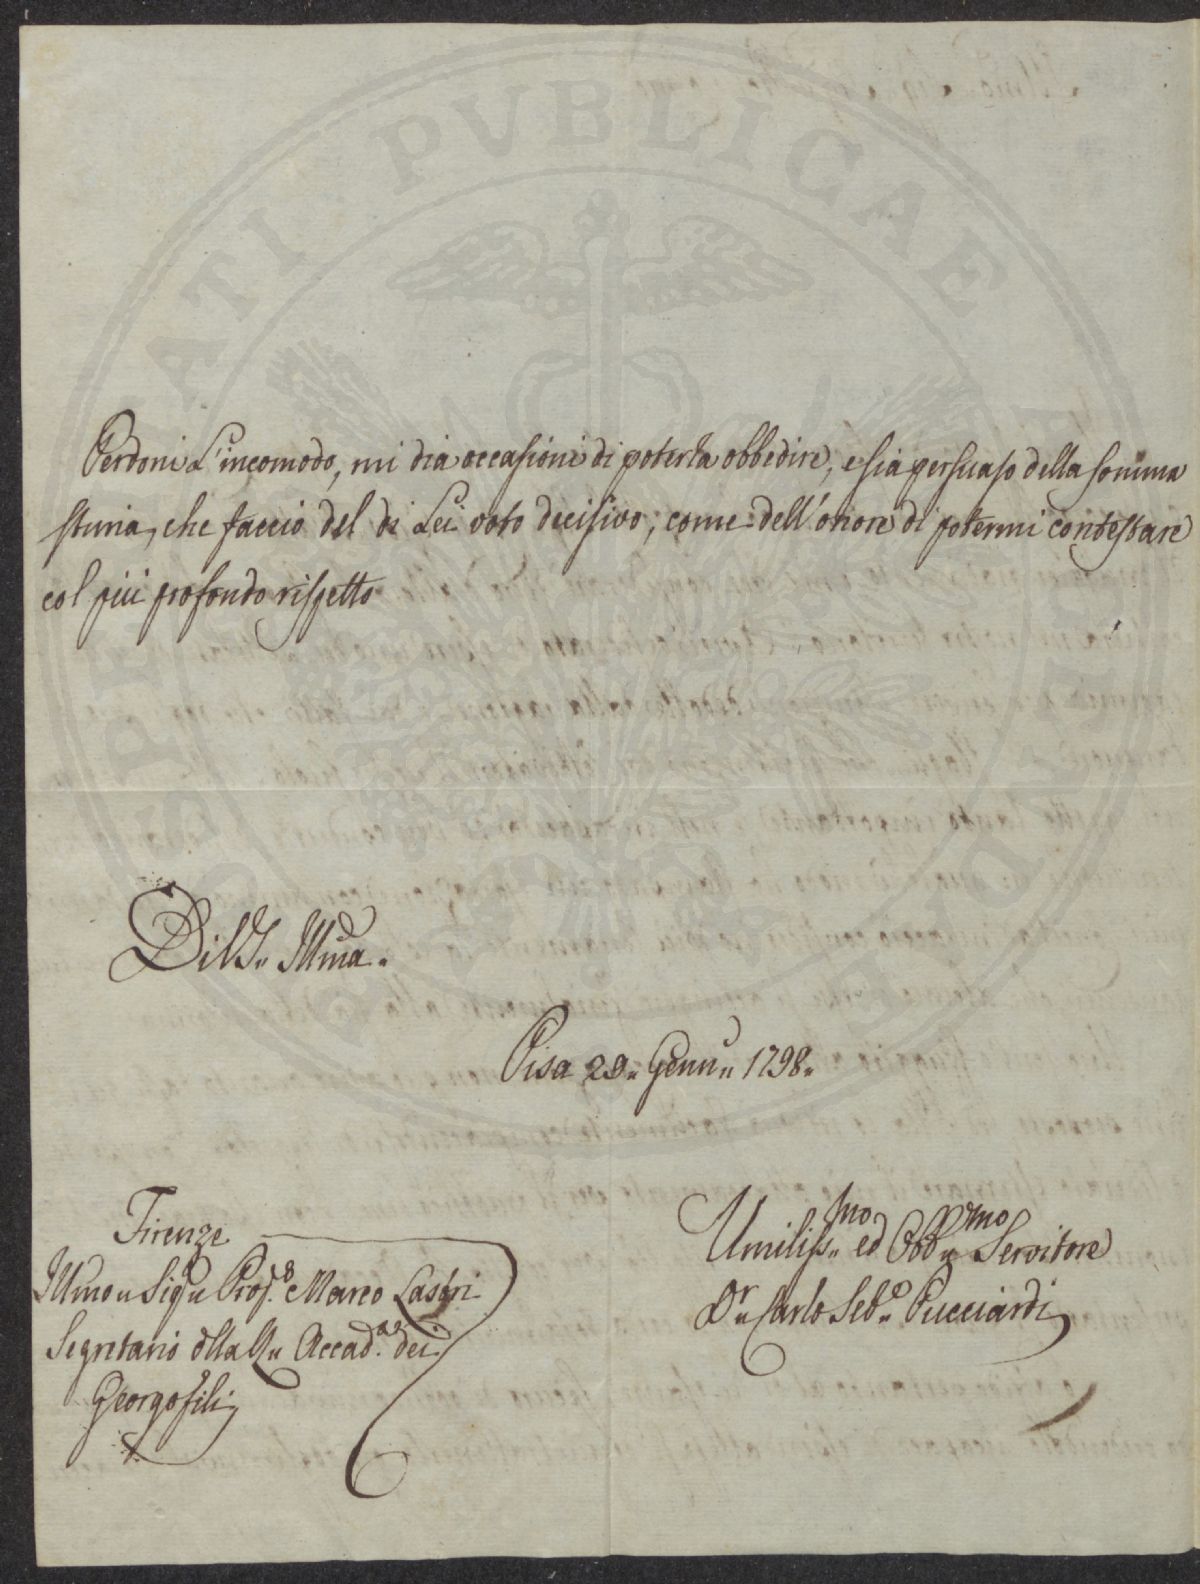 PROSPERITATI PVBLICAE AVGENDAE
Perdoni L'incomodo, mi dia occasione di poterla obbedire, e sia persuaso della somma
stima, che faccio del di Lei voto decisivo, come dell'onore di potermi contestare
col più profondo rispetto
Di V.S. Illma.
Pisa 29. Genn. 1798.
Firenze
Illmo Sig. Prop. Marco Lastri
Segretario dlla R. Accad. dei
Georgofili
Umiliss.mo ed Obb.mo Servitore
Dr. Carlo Seb.o Pucciardi